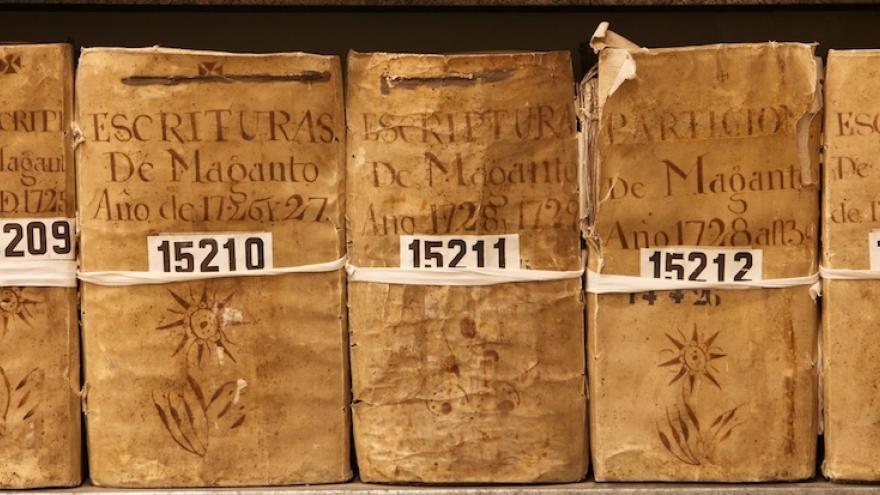 De Maganto
15209
ESCRITURAS.
De Maganto
Año de 1726 y 27.
15210
ESCRIPTURA
De Maganto
Año 1728 y 1729
15211
PARTICION
De Maganto
Año 1728 a
15212
14 4 26
ESC
De
de 17
1